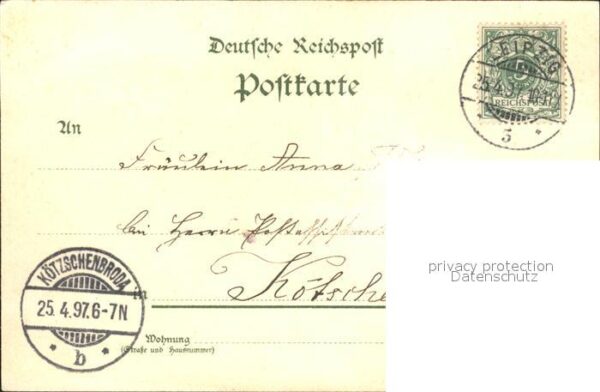 Deutsche Reichspost
Postkarte
LEIPZIG
25.4.97
5
REICHSPOST
5
An
Fräulein Anna
bei Herrn
Kötsche
privacy protection
Datenschutz
KÖTZSCHENBRODA
25.4.97.6-7N
b
in
Wohnung
(Straße und Hausnummer)